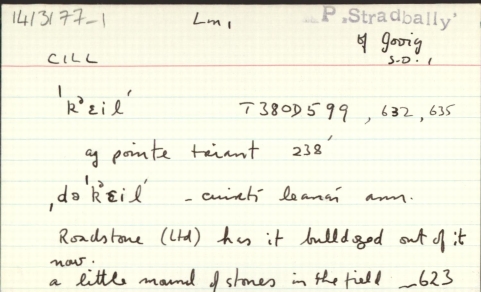 14/3177-1 Lm, P. Stradbally'
CILL S.D. 1
'k ɛil´ T380D599, 632, 635
ag pointe 238´
,də 'k ɛil´ - leanaí ann.
Roadstone (Ltd) has it bulldozed out of it
now.
a little mound of stones in the field _623